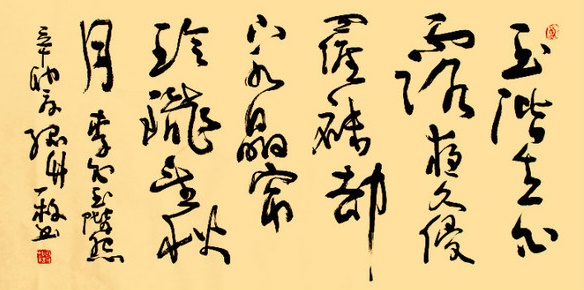 玉階生白
露夜久侵
羅襪却
下水晶帘
玲瓏望秋
月 李白玉階怨
辛卯